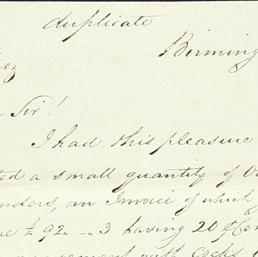 duplicate
Birming
Sir!
I had this pleasure
ted a small quantity of
nders, an Invoice of which
92 3 having 20 p Cen
with cocks